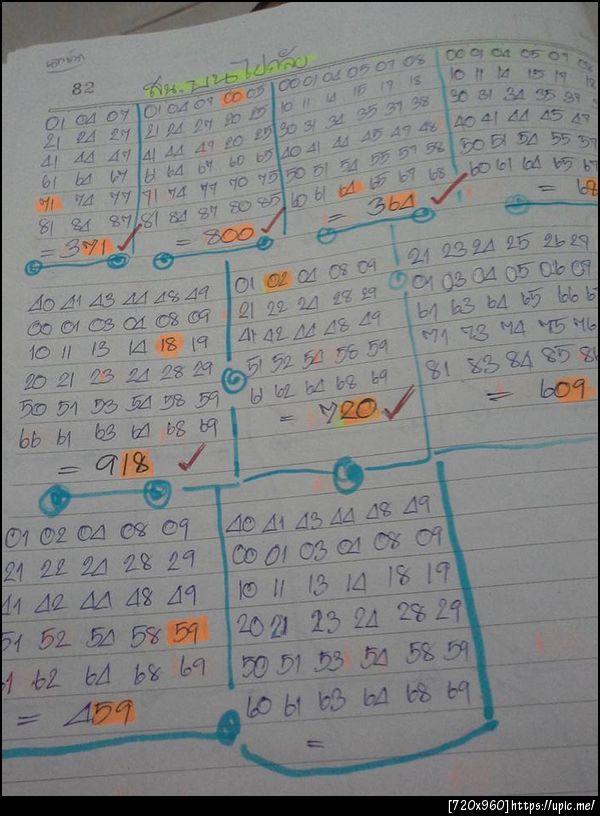 82
01 04 07
21 24 27
41 44 47
61 64 67
71 74 77
81 84 87
= 371 ✓
01 04 07 00 05
21 24 27 20 25
41 44 49 20 25
61 64 67 60 65
71 74 77 70 75
81 84 87 80 85
= 800 ✓
00 01 04 05 07 08
10 11 14 15 17 18
30 31 34 35 37 38
40 41 44 45 47 48
50 51 54 55 57 58
60 61 64 65 67 68
= 364 ✓
00 01 04 05 07 08
10 11 14 15 17 18
30 31 34 35 37
40 41 44 45 47
50 51 54 55 57
60 61 64 65 67
= 68
40 41 43 44 48 49
00 01 03 04 08 09
10 11 13 14 18 19
20 21 23 24 28 29
50 51 53 54 58 59
66 61 63 64 68 69
= 918 ✓
01 02 04 08 09
21 22 24 28 29
41 42 44 48 49
51 52 54 58 59
61 62 64 68 69
= 720 ✓
21 23 24 25 26 29
01 03 04 05 06 09
61 63 64 65 66 6
71 73 74 75 76
81 83 84 85 86
= 609
01 02 04 08 09
21 22 24 28 29
41 42 44 48 49
51 52 54 58 59
61 62 64 68 69
= 459
40 41 43 44 48 49
00 01 03 04 08 09
10 11 13 14 18 19
20 21 23 24 28 29
50 51 53 54 58 59
60 61 63 64 68 69
=
[720x960] https://upic.me/